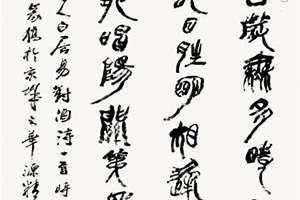 歲無多時
日晴明相逢
唱陽關第
人白居易對酒詩一首時
於京華之華源精